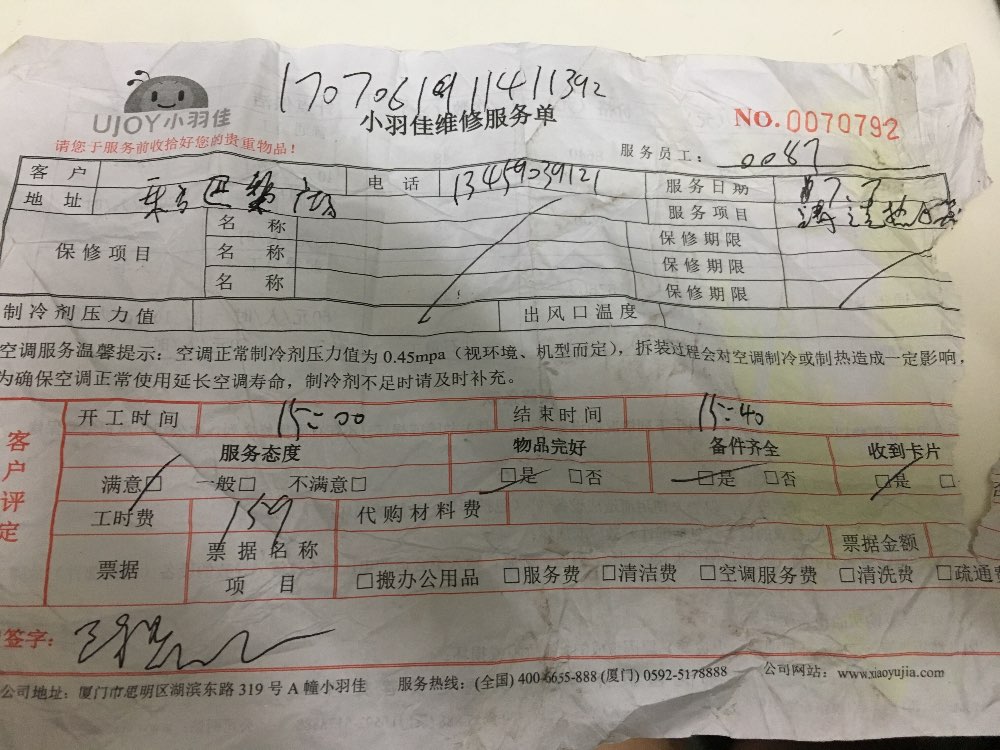 17070619111411392
UJOY小羽佳
小羽佳维修服务单
NO.0070792
请您于服务前收拾好您的贵重物品！
服务员工： 0087
客 户 电 话 13459039121 服务日期
地 址 服务项目
保修项目 名 称 保修期限
名 称 保修期限
名 称 保修期限
制冷剂压力值 出风口温度
空调服务温馨提示：空调正常制冷剂压力值为 0.45mpa（视环境、机型而定），拆装过程会对空调制冷或制热造成一定影响，
为确保空调正常使用延长空调寿命，制冷剂不足时请及时补充。
客户评定
开工时间 15:00 结束时间 15:40
服务态度 物品完好 备件齐全 收到卡片
满意□ 一般□ 不满意□ □是 □否 □是 □否 □是 □
工时费 159 代购材料费
票据 票据名称 票据金额
项 目 □搬办公用品 □服务费 □清洁费 □空调服务费 □清洗费 □疏通费
签字：
公司地址：厦门市思明区湖滨东路 319 号 A 幢小羽佳 服务热线：(全国) 400-6655-888 (厦门) 0592-5178888 公司网站：www.xiaoyujia.com